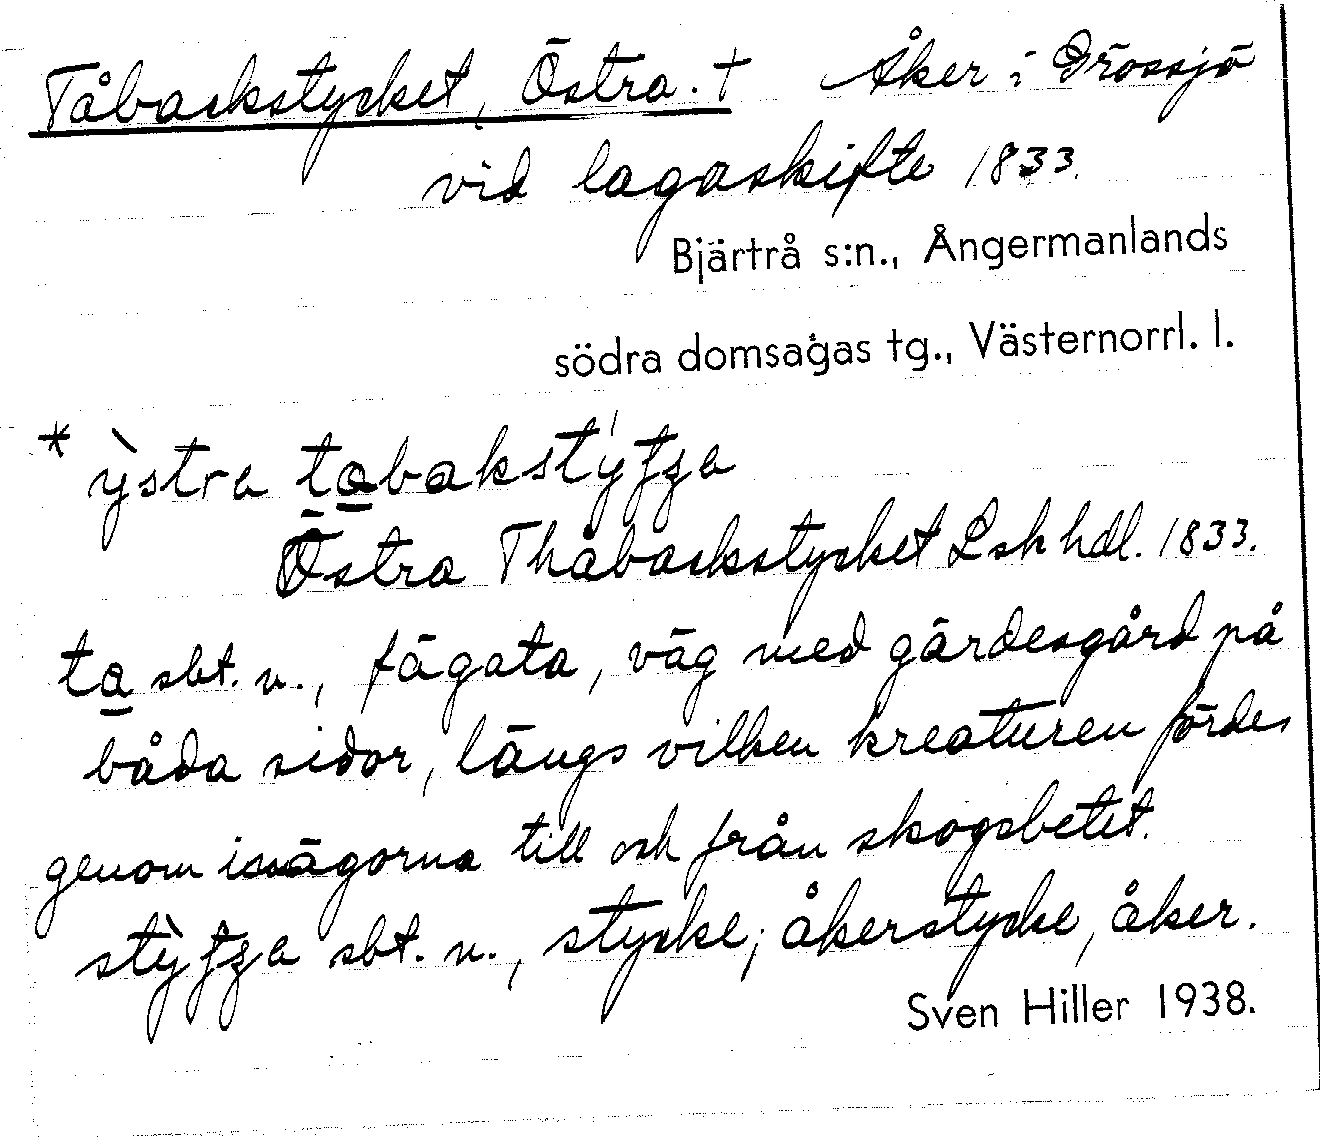 Tåbackstycket, Östra. † Åker i Grössjö
vid lagaskifte 1833.
Bjärtrå s:n., Ångermanlands
södra domsagas tg., Västernorrl. l.
* ỳstra tabakstýtʒa
Östra Thåbackstycket Lskhdl. 1833.
ta sbt. n., fägata, väg med gärdesgård på
båda sidor, längs vilken kreaturen fördes
genom inägorna till och från skogsbetet.
stỳtʒa sbt. n., stycke; åkerstycke, åker.
Sven Hiller 1938.